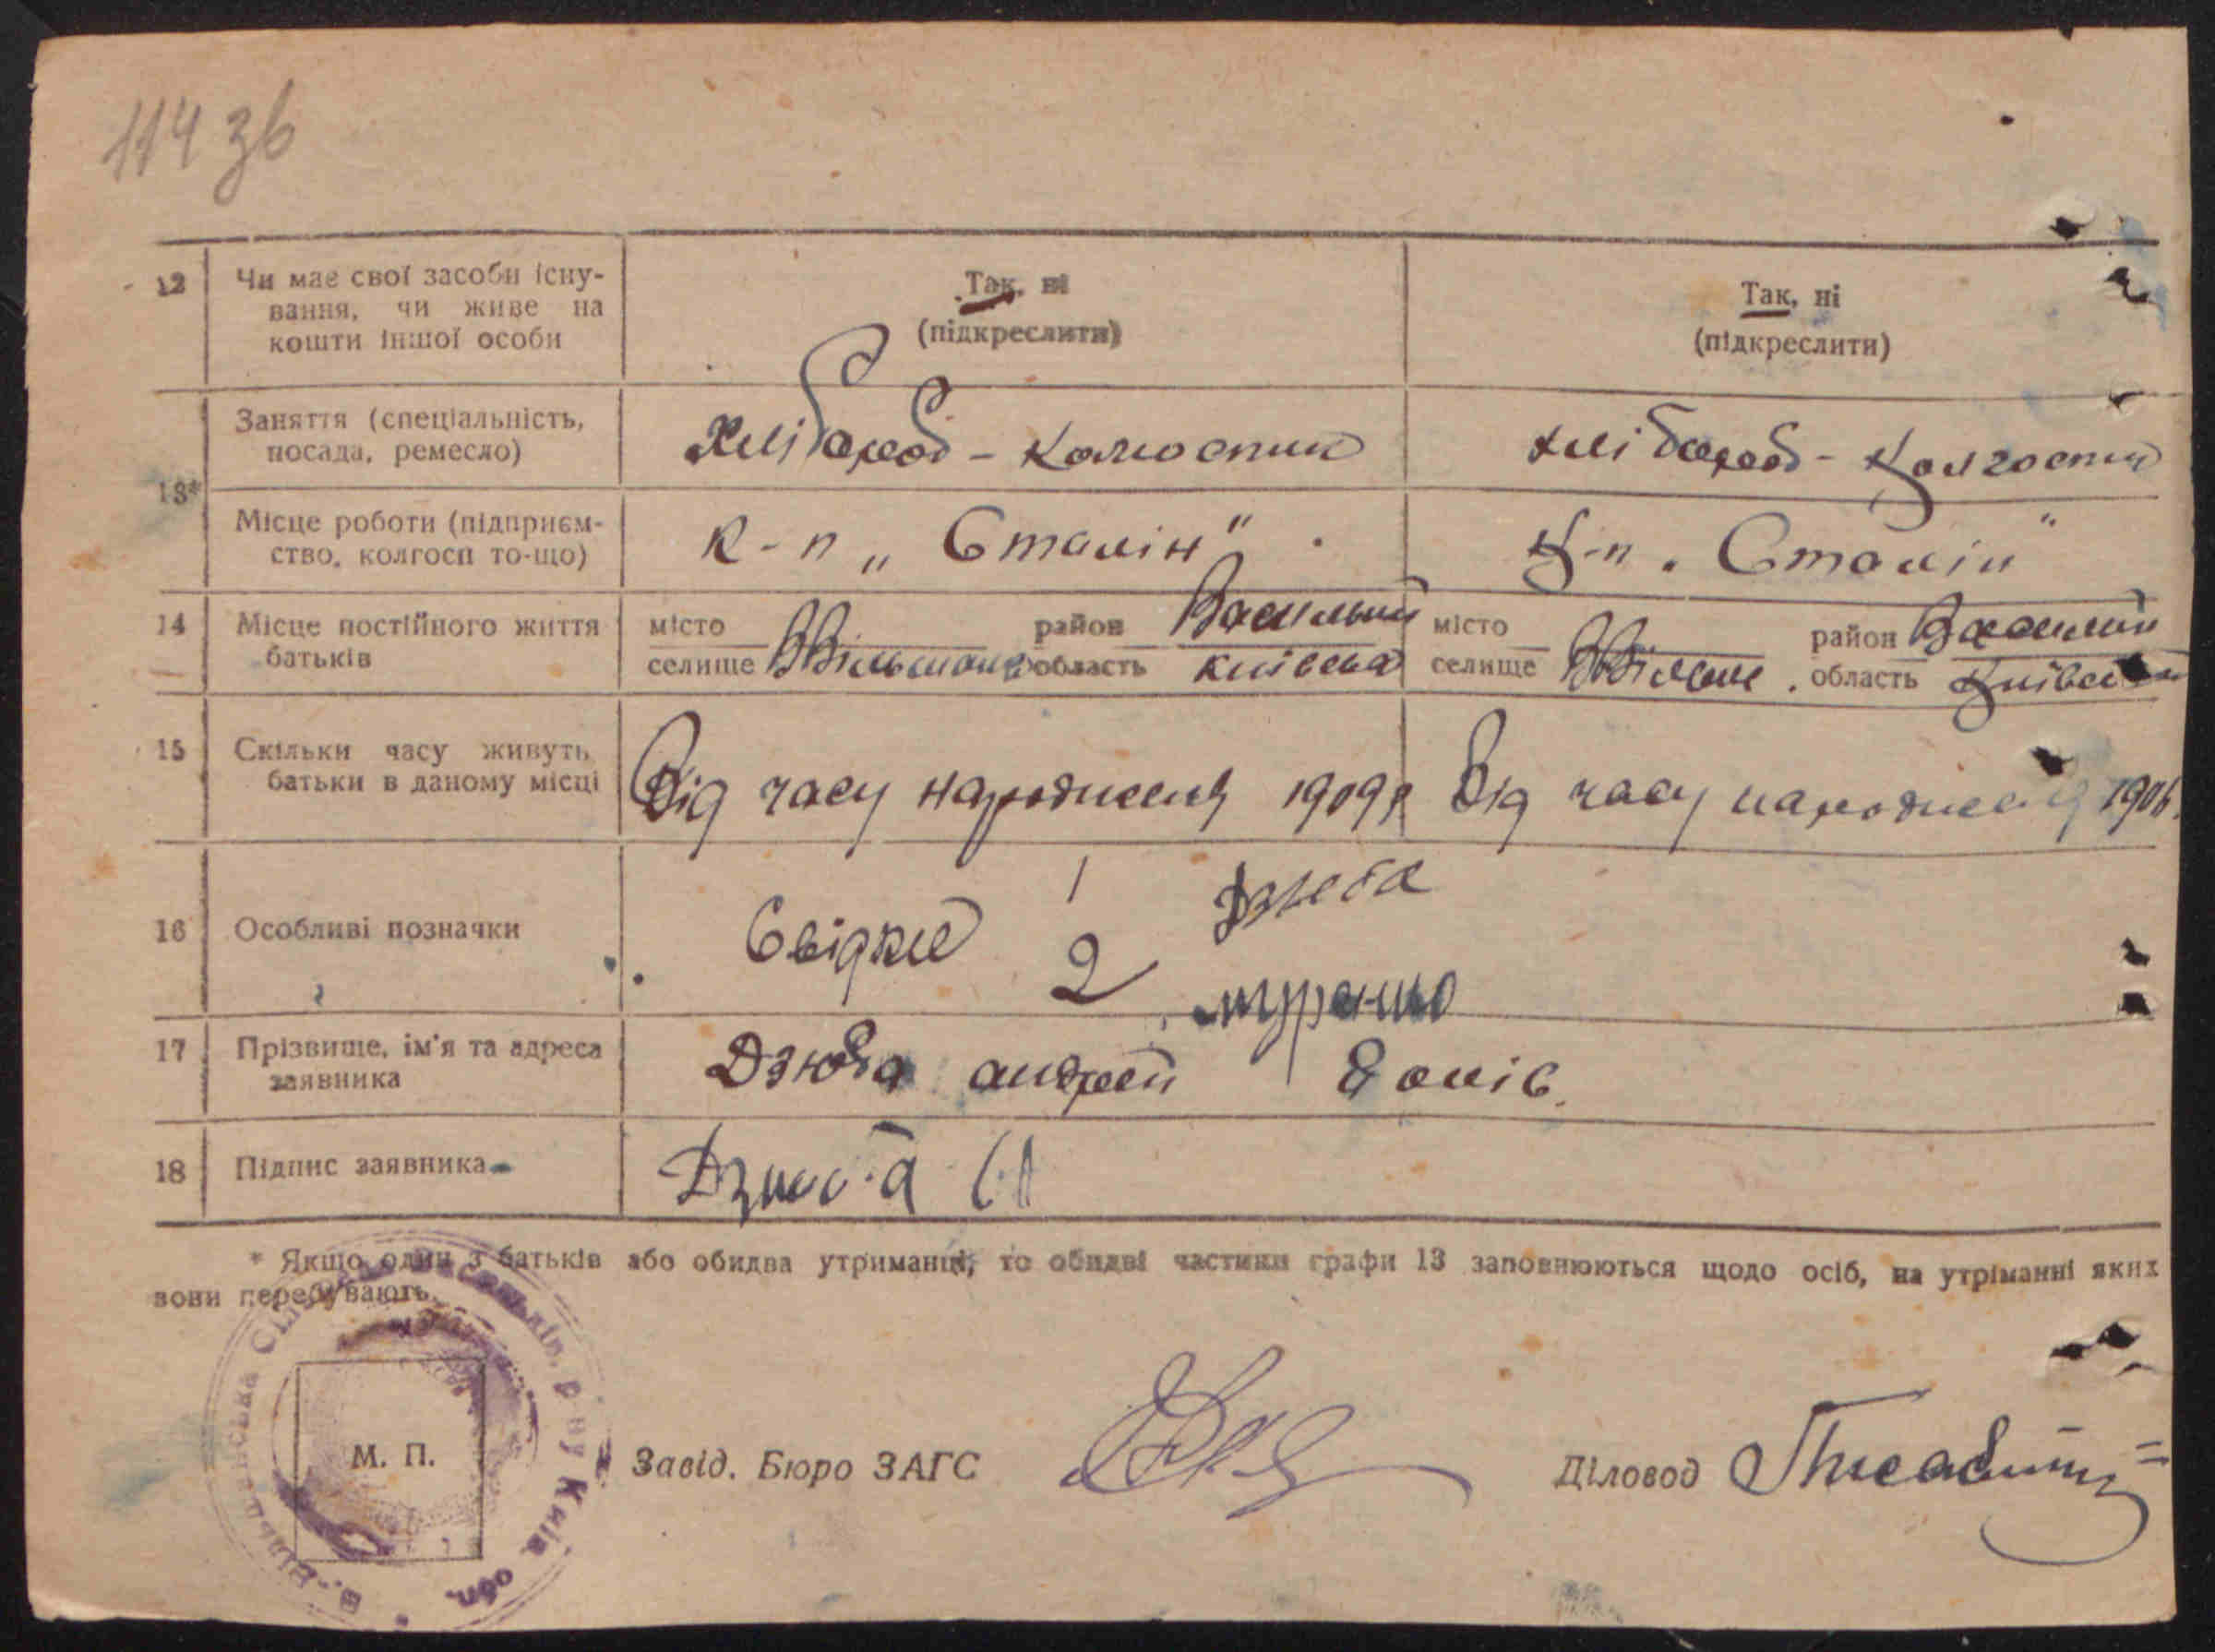 114 зв
12 Чи має свої засоби існу- Так, ні Так, ні
вання, чи живе на (підкреслити) (підкреслити)
кошти іншої особи
13* Заняття (спеціальність, Хлібороб - колгоспник хлібороб - колгоспник
посада, ремесло)
Місце роботи (підприєм- к-п „Сталін" к-п „Сталін"
ство, колгосп то-що)
14 Місце постійного життя місто район місто район
батьків селище область Київська селище область Київська
15 Скільки часу живуть Від часу народження 1909 р Від часу народження 1906
батьки в даному місці
1 Дзюба
16 Особливі позначки Свідки
2
17 Прізвище, ім'я та адреса Дзюба Андрей
заявника
18 Підпис заявника
* Якщо один з батьків або обидва утриманці, то обидві частини графи 13 заповнюються щодо осіб, на утріманні яких
вони перебувають.
М. П. Завід. Бюро ЗАГС Діловод